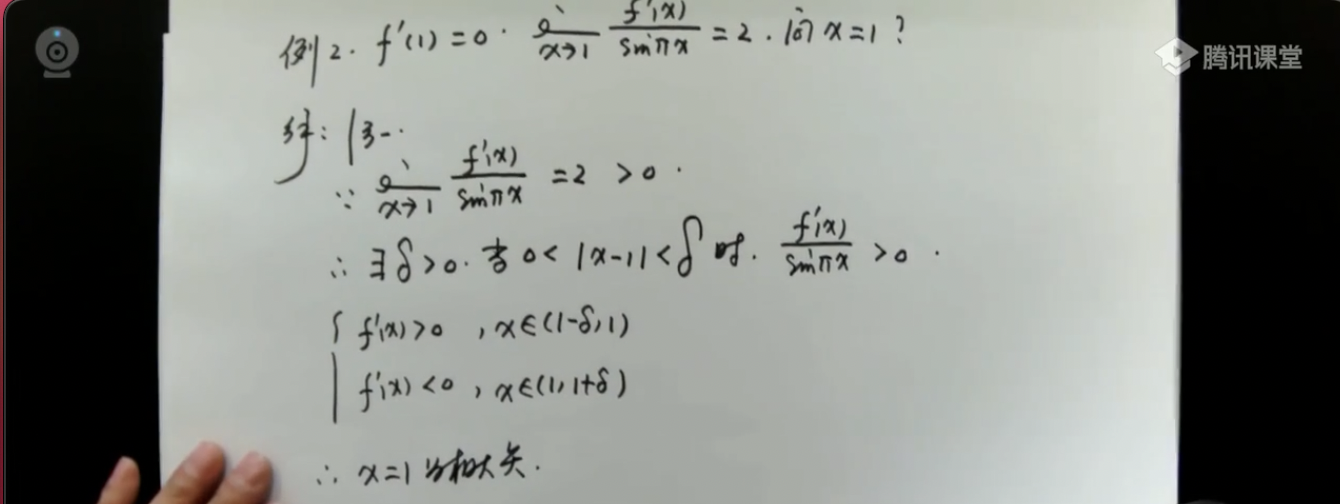 例2. f'(1)=0. lim x→1 f'(x)/sinπx = 2. 问 x=1 ?
腾讯课堂
解: 
∵ lim x→1 f'(x)/sinπx = 2 > 0.
∴ ∃δ>0. 当 0<|x-1|<δ 时. f'(x)/sinπx > 0.
{ f'(x)>0 , x∈(1-δ,1)
f'(x)<0 , x∈(1,1+δ)
∴ x=1 为极大点.